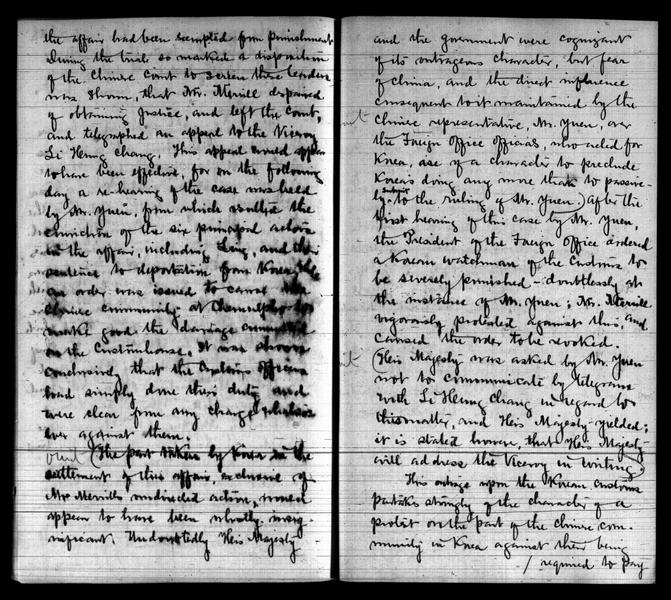 the affair had been exempted from punishment
During the trial so marked a disposition
of the Chinese Court to screen these leaders
was shown, that Mr. Merrill despaired
of obtaining justice, and left the Court,
and telegraphed an appeal to the Viceroy
Li Hung Chang. This appeal would appear
to have been effective, for on the following
day a re-hearing of the case was held
by Mr. Yuen, from which resulted the
conviction of the six principal actors
in the affair, including Ling, and their
sentence to deportation from Korea, while
an order was issued to cause the
Chinese community at Chemulpho to
make good the damage committed
on the Customhouse. It was shown
conclusively that the Customs officers
had simply done their duty and
were clear from any charge whatso
ever against them.
omit (The part taken by Korea in the
settlement of this affair, exclusive of
Mr Merrill's undivided action, would
appear to have been wholly insig-
nificant. Undoubtedly His Majesty
and the government were cognizant
of its outrageous character, but fear
of China, and the direct influence
consequent to it maintained by the
Chinese representative, Mr. Yuen, over
the Foreign Office officials, who acted for
Korea, are of a character to preclude
Korea's doing any more than to passive-
ly submit to the ruling of Mr. Yuen.) After the
first hearing of this case by Mr. Yuen,
the President of the Foreign Office ordered
a Korean watchman of the Customs to
be severely punished – doubtlessly at
the instance of Mr. Yuen; Mr. Merrill
vigorously protested against this, and
caused the order to be revoked.
(His Majesty was asked by Mr. Yuen
not to communicate by telegram
with Li Hung Chang in regard to
this matter, and His Majesty yielded;
it is stated however, that His Majesty
will address the Viceroy in writing.)
This outrage upon the Korean Customs
partakes strongly of the character of a
protest on the part of the Chinese com-
munity in Korea against their being
/ required to pay